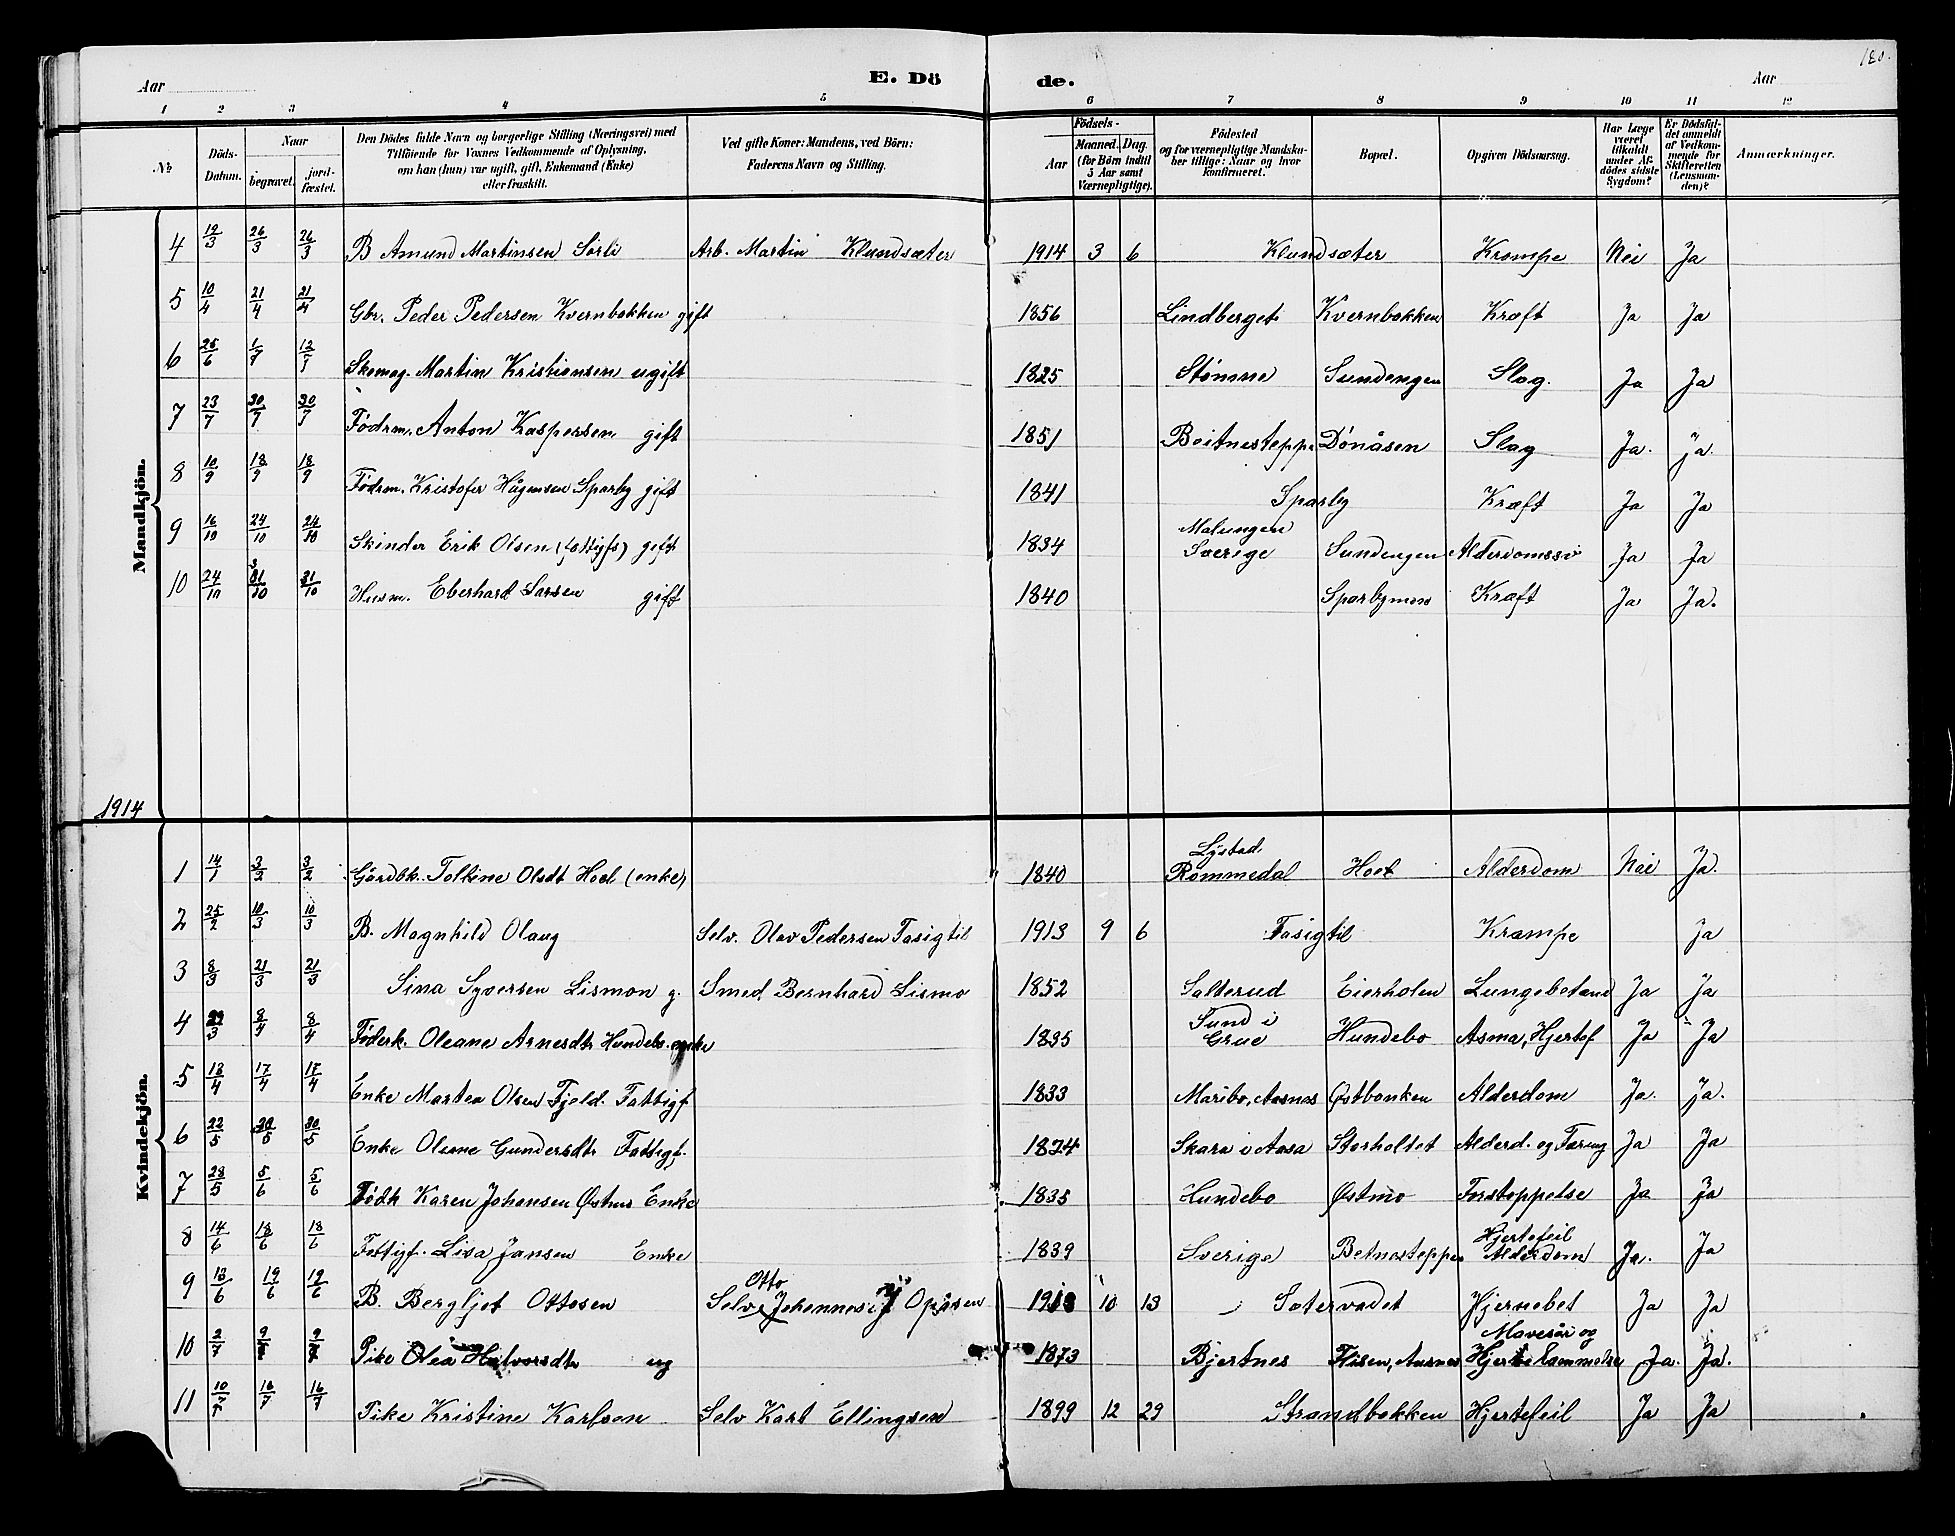 180.
Aar E. Dö de. Aar
1 2 3 4 5 6 7 8 9 10 11 12
No
Döds-Datum.
Naar
begravet.
jord-fæstet.
Den Dödes fulde Navn og borgerlige Stilling (Næringsvei) med
Tilföiende for Voxnes Vedkommende af Oplysning,
om han (hun) var ugift, gift, Enkemand (Enke)
eller fraskilt.
Ved gifte Koner: Mandens, ved Börn:
Faderens Navn og Stilling.
Födsels-
Aar
Maaned. Dag.
(for Börn indtil
5 Aar samt
Værnepligtige).
Födested
og for værnepligtige Mandska-
ber tillige: Naar og hvor
konfirmeret.
Bopæl.
Opgiven Dödsaarsag.
Har Læge
været
tilkaldt
under Af-
dödes sidste
Sygdom?
Er Dödsfal-
det anmeldt
af Vedkom-
mende for
Skifteretten
(Lensman-
den)?
Anmærkninger.
Mandkjön.
4 19/3 26/3 26/3 B Amund Martinsen Sørli Arb. Martin Klundsæter 1914 3 6 Klundsæter Krampe Nei Ja
5 10/4 21/4 21/4 Gbr. Peder Pedersen Kvernbakken gift 1856 Lindberget Kvernbakken Kræft Ja Ja
6 25/6 1/7 12/7 Skomag. Martin Kristiansen ugift 1825 Stømne Sundengen Slag. Ja Ja
7 23/7 30/7 30/7 Födrm. Anton Kaspersen gift 1851 Beitnesteppe Dönåsen Slag Ja. Ja.
8 10/9 18/9 18/9 Födrm. Kristofer Hågensen Sparby gift 1841 Sparby Kræft Ja Ja
9 16/10 24/10 24/10 Skinder Erik Olsen (fattigfs) gift 1834 Malungen Sverige Sundengen Alderdomssv Ja Ja
10 24/10 31/10 31/10 Husm. Eberhard Larsen gift 1840 Sparbymoen Kræft Ja Ja.
1914
Kvindekjön.
1 14/1 3/2 3/2 Gårdbk. Tolline Olsdt Hoel (enke) 1840 Lystad. Rommedal Hoel Alderdom Nei Ja.
2 25/2 10/3 10/3 B. Magnhild Olaug Selv. Olav Pedersen Fasigtil 1913 9 6 Fasigtil Krampe Ja
3 8/3 21/3 21/3 Sina Syversen Lismon g. Smed Bernhard Lismo 1852 Salterud Eierholen Lungebetænd Ja Ja
4 29/3 8/4 8/4 Föderk. Oleane Arnesdtr Hundebo. enke 1835 Sund i Grue Hundebo Asma, Hjertef Ja Ja
5 13/4 17/4 17/4 Enke Martea Olsen Fjeld. Fattigf 1833 Maribo, Aasnes Østbanken Alderdom Ja. Ja.
6 22/5 30/5 30/5 Enke Oleane Gundersdtr Fattigf. 1824 Skara i Aasa Storholtet Alderd. og Tæring Ja Ja
7 28/5 5/6 5/6 Födk Karen Johansen Østmo Enke 1835 Hundebo Østmo Forstoppelse Ja Ja
8 14/6 18/6 18/6 Fattigf. Lisa Jansen Enke 1839 Sverige Betnesteppen Hjertefeil Alderdom Ja. Ja
9 13/6 19/6 19/6 B. Bergljot Ottosen Selv. Otto Johannesen Opåsen 1913 10 13 Sætervadet Hjernebet Ja Ja
10 2/7 9/7 9/7 Pike Olea Halvorsdtr ug 1873 Bjertnes Flisen, Aasnes Mavesår og Hjertelammelse Ja. Ja.
11 10/7 16/7 16/7 Pike Kristine Karlsen Selv Karl Ellingsen 1899 12 29 Strandbakken Hjertefeil Ja Ja